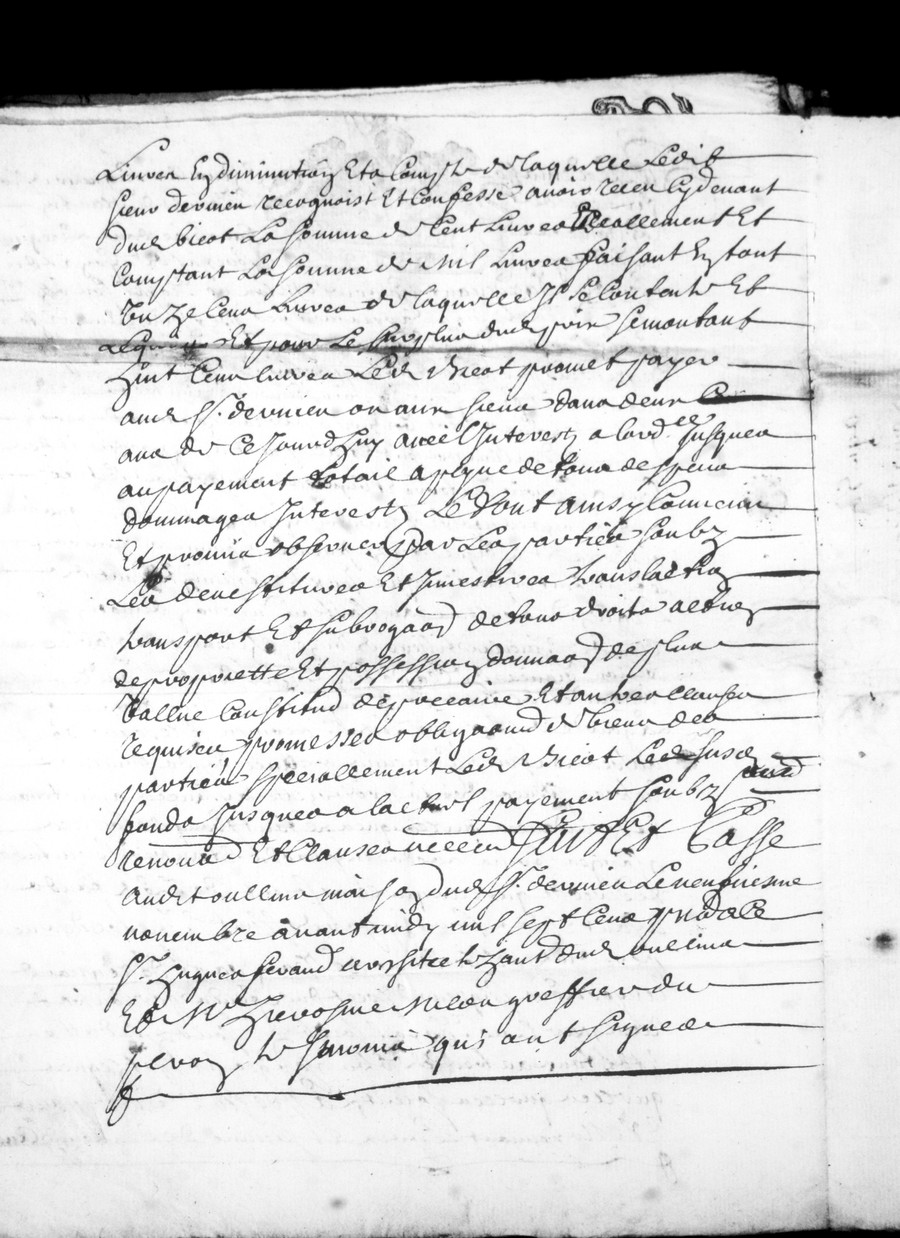 Livres En diminution Et a Compte de laquelle Ledit
sieur dervieu recognoist Et Confesse avoir receu Cydevant
dud bicot La somme de Cent Livres Reallement Et
Comptant La somme de Mil Livres faisant En tout
unze Cens Livres de laquelle Il se Contente Et
Lequitte Et pour Le surplus dud prix se montant
huit Cens livres Led Bicot promet payer
aud Sr. dervieu ou aux siens dans deux
ans de Ce Jourdhuy avec l'Interest a lord.re Jusques
au payement totail a peyne de tous despens
dommages Interestz Le tout ainsy Convenu
Et promis observer par Les parties soubz
Les devestitures Et Investures translaction
transport Et subrogaon de tous droits actions
de proprietté Et possession donnaon de plus
vallue Constitud de precaire Et autres clauses
requises promesses obligaond de biens des
parties speciallement Led Bicot Led susd
fonds Jusques a lactuel payement soubz
renond Et Clauses necess fait Et Passé
aud oullins maison dud Sr. dervieu Le neufviesme
novembre avant midy mil sept Cens presdz
Sr. hugues ferand dud oullins
Et Mre Hierosme greffier du
tesmoins qui ont signé